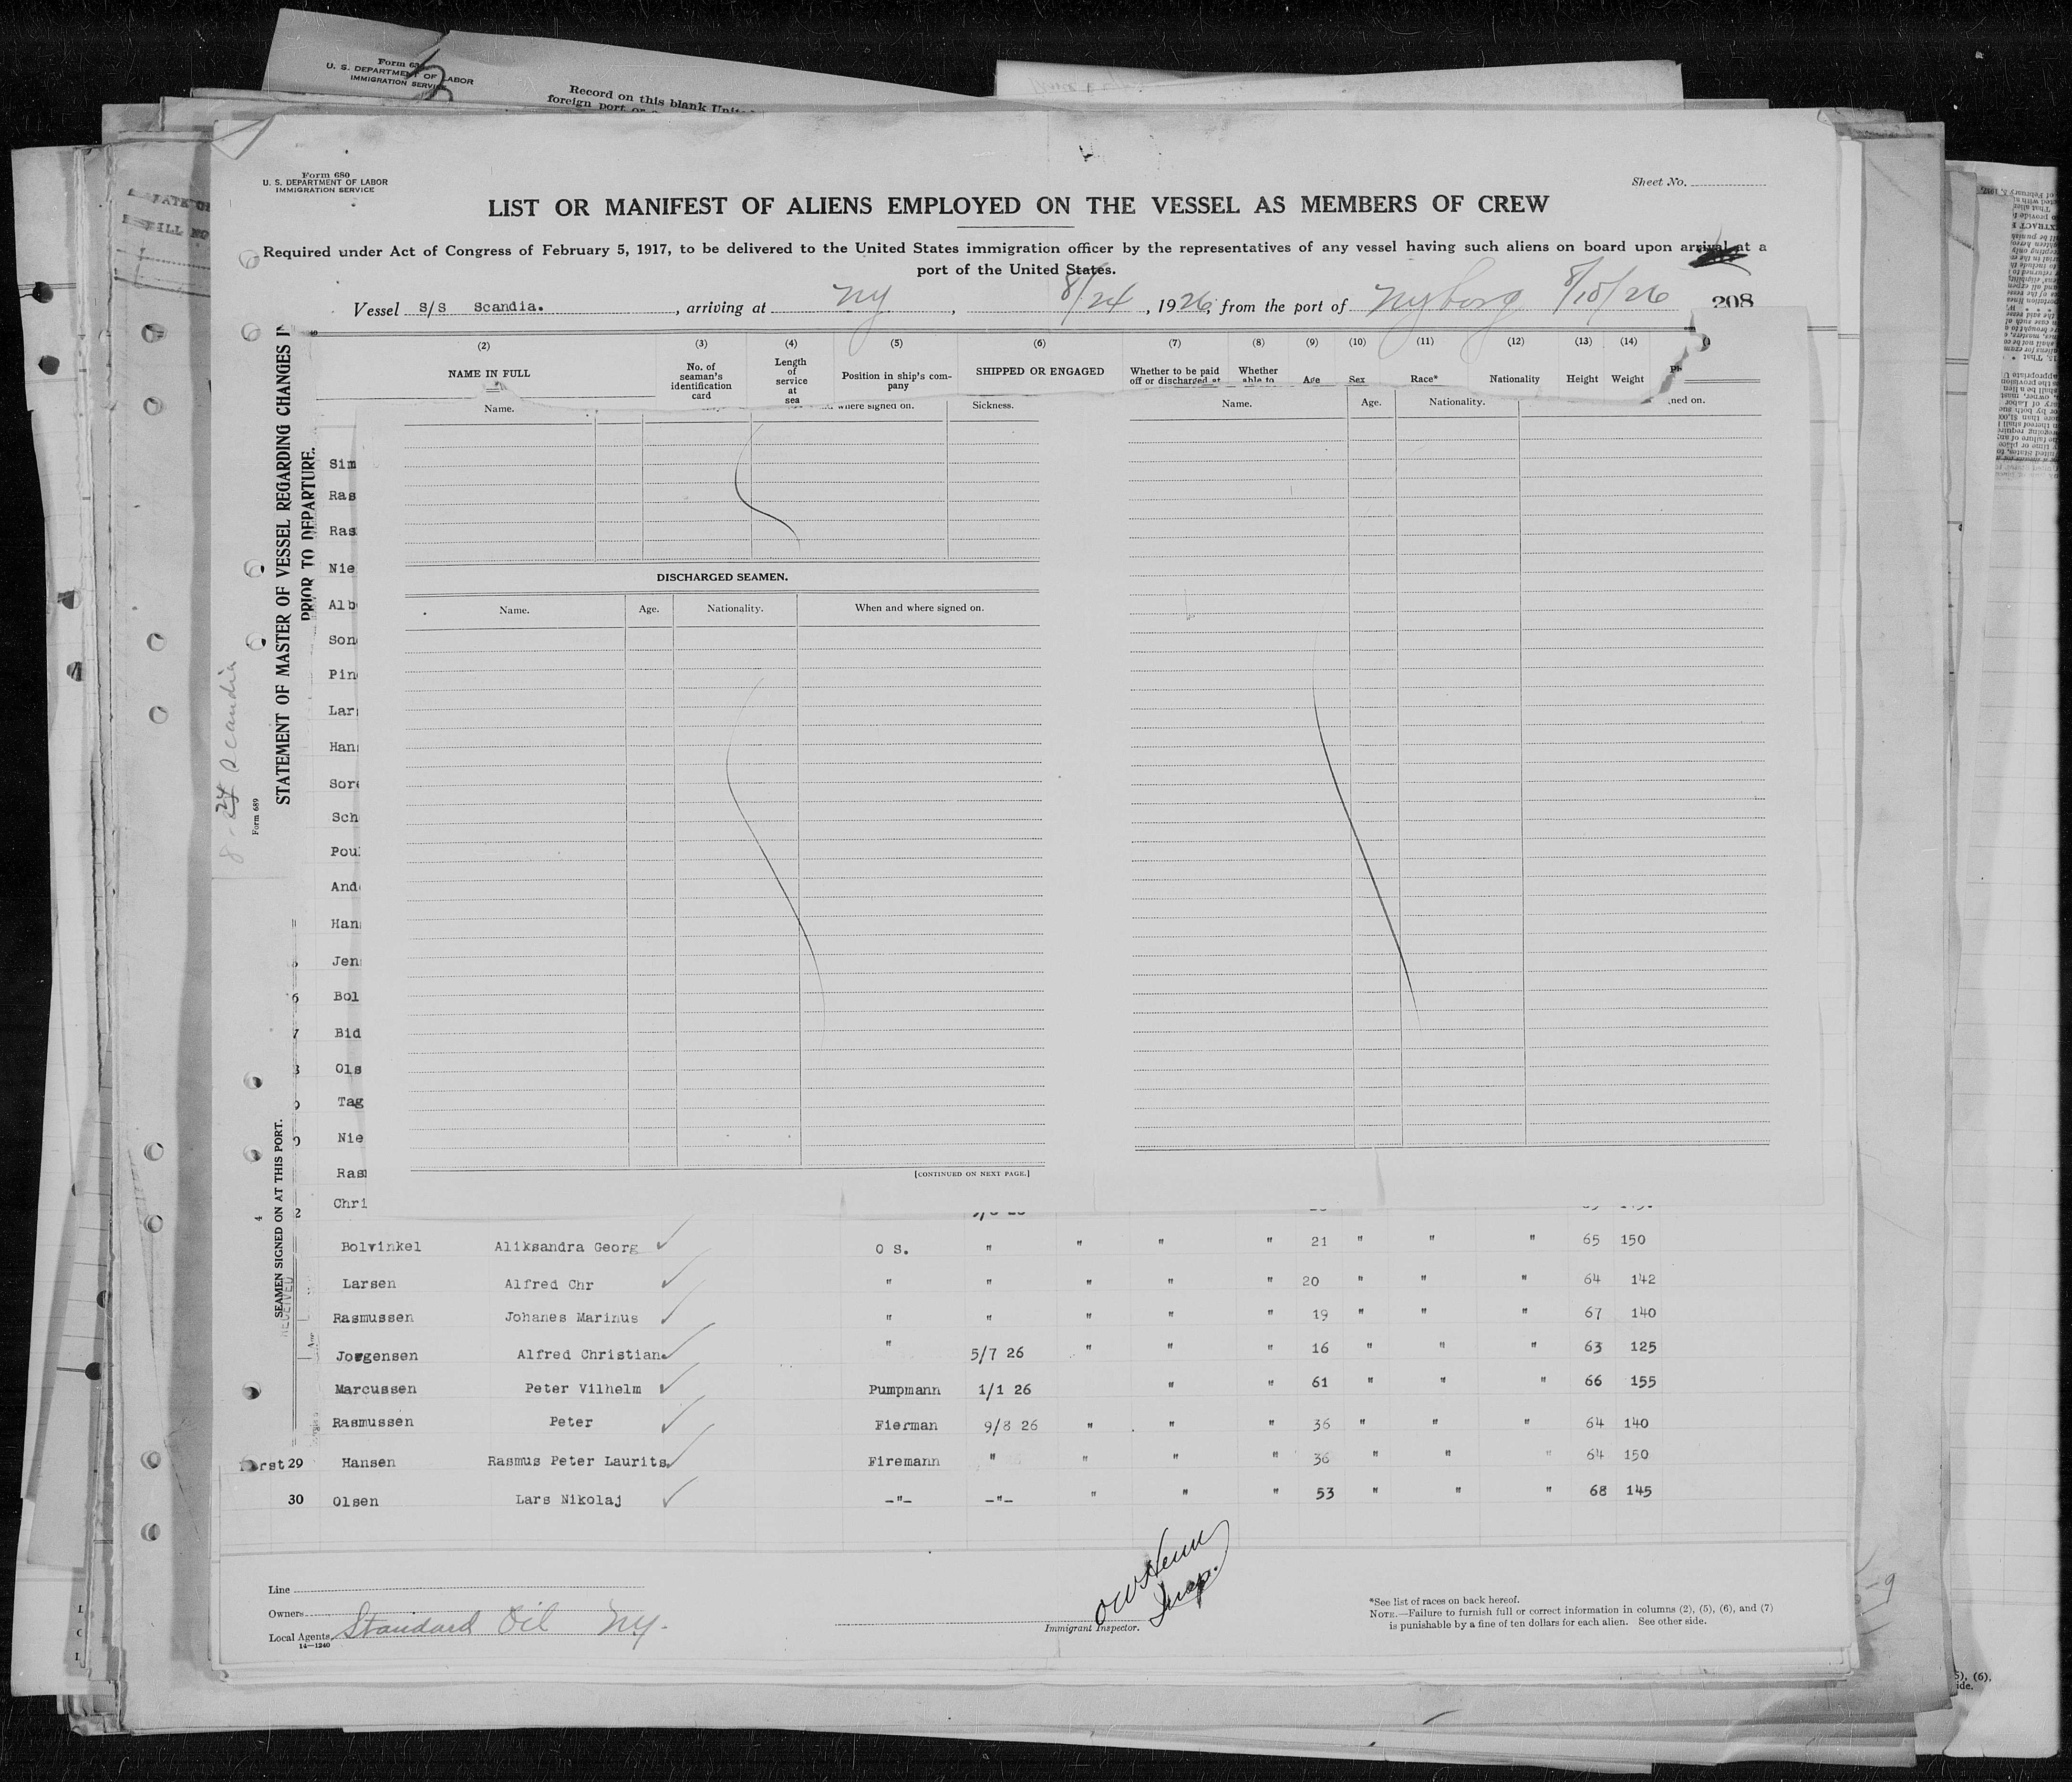 Form 680
U. S. DEPARTMENT OF LABOR
IMMIGRATION SERVICE
Record on this blank
foreign port or
Form 680
U. S. DEPARTMENT OF LABOR
IMMIGRATION SERVICE
Sheet No.
LIST OR MANIFEST OF ALIENS EMPLOYED ON THE VESSEL AS MEMBERS OF CREW
Required under Act of Congress of February 5, 1917, to be delivered to the United States immigration officer by the representatives of any vessel having such aliens on board upon arrival at a
port of the United States.
Vessel S/S Scandia. , arriving at NY , 8/24 , 1926, from the port of Nyborg 8/10/26
208
(2) (3) (4) (5) (6) (7) (8) (9) (10) (11) (12) (13) (14)
NAME IN FULL No. of seaman's identification card Length of service at sea Position in ship's company SHIPPED OR ENGAGED Whether to be paid off or discharged at Whether able to Age Sex Race* Nationality Height Weight
Name. where signed on. Sickness. Name. Age. Nationality. ned on.
STATEMENT OF MASTER OF VESSEL REGARDING CHANGES
PRIOR TO DEPARTURE.
8-24 Scandia
Form 689
SEAMEN SIGNED ON AT THIS PORT.
RECEIVED
4
Sim
Ras
Ras
Nie
Alb
Son
Pin
Lar
Han
Sore
Sch
Poul
And
Han
Jen
Bol
Bid
Ols
Tag
Nie
Ras
Chri
DISCHARGED SEAMEN.
Name. Age. Nationality. When and where signed on.
[CONTINUED ON NEXT PAGE.]
Bolvinkel Aliksandra Georg O S. " " " " 21 " " " 65 150
Larsen Alfred Chr " " " " " 20 " " " 64 142
Rasmussen Johanes Marinus " " " " " 19 " " " 67 140
Jorgensen Alfred Christian. " 5/7 26 " " " 16 " " " 63 125
Marcussen Peter Vilhelm Pumpmann 1/1 26 " " 61 " " " 66 155
Rasmussen Peter Fierman 9/8 26 " " " 36 " " " 64 140
29 Hansen Rasmus Peter Laurits Firemann " " " " 36 " " " 64 150
30 Olsen Lars Nikolaj -"- -"- " " " 53 " " " 68 145
Line
Owners
Local Agents Standard Oil NY.
14—1240
Insp.
Immigrant Inspector.
*See list of races on back hereof.
NOTE.—Failure to furnish full or correct information in columns (2), (5), (6), and (7)
is punishable by a fine of ten dollars for each alien. See other side.